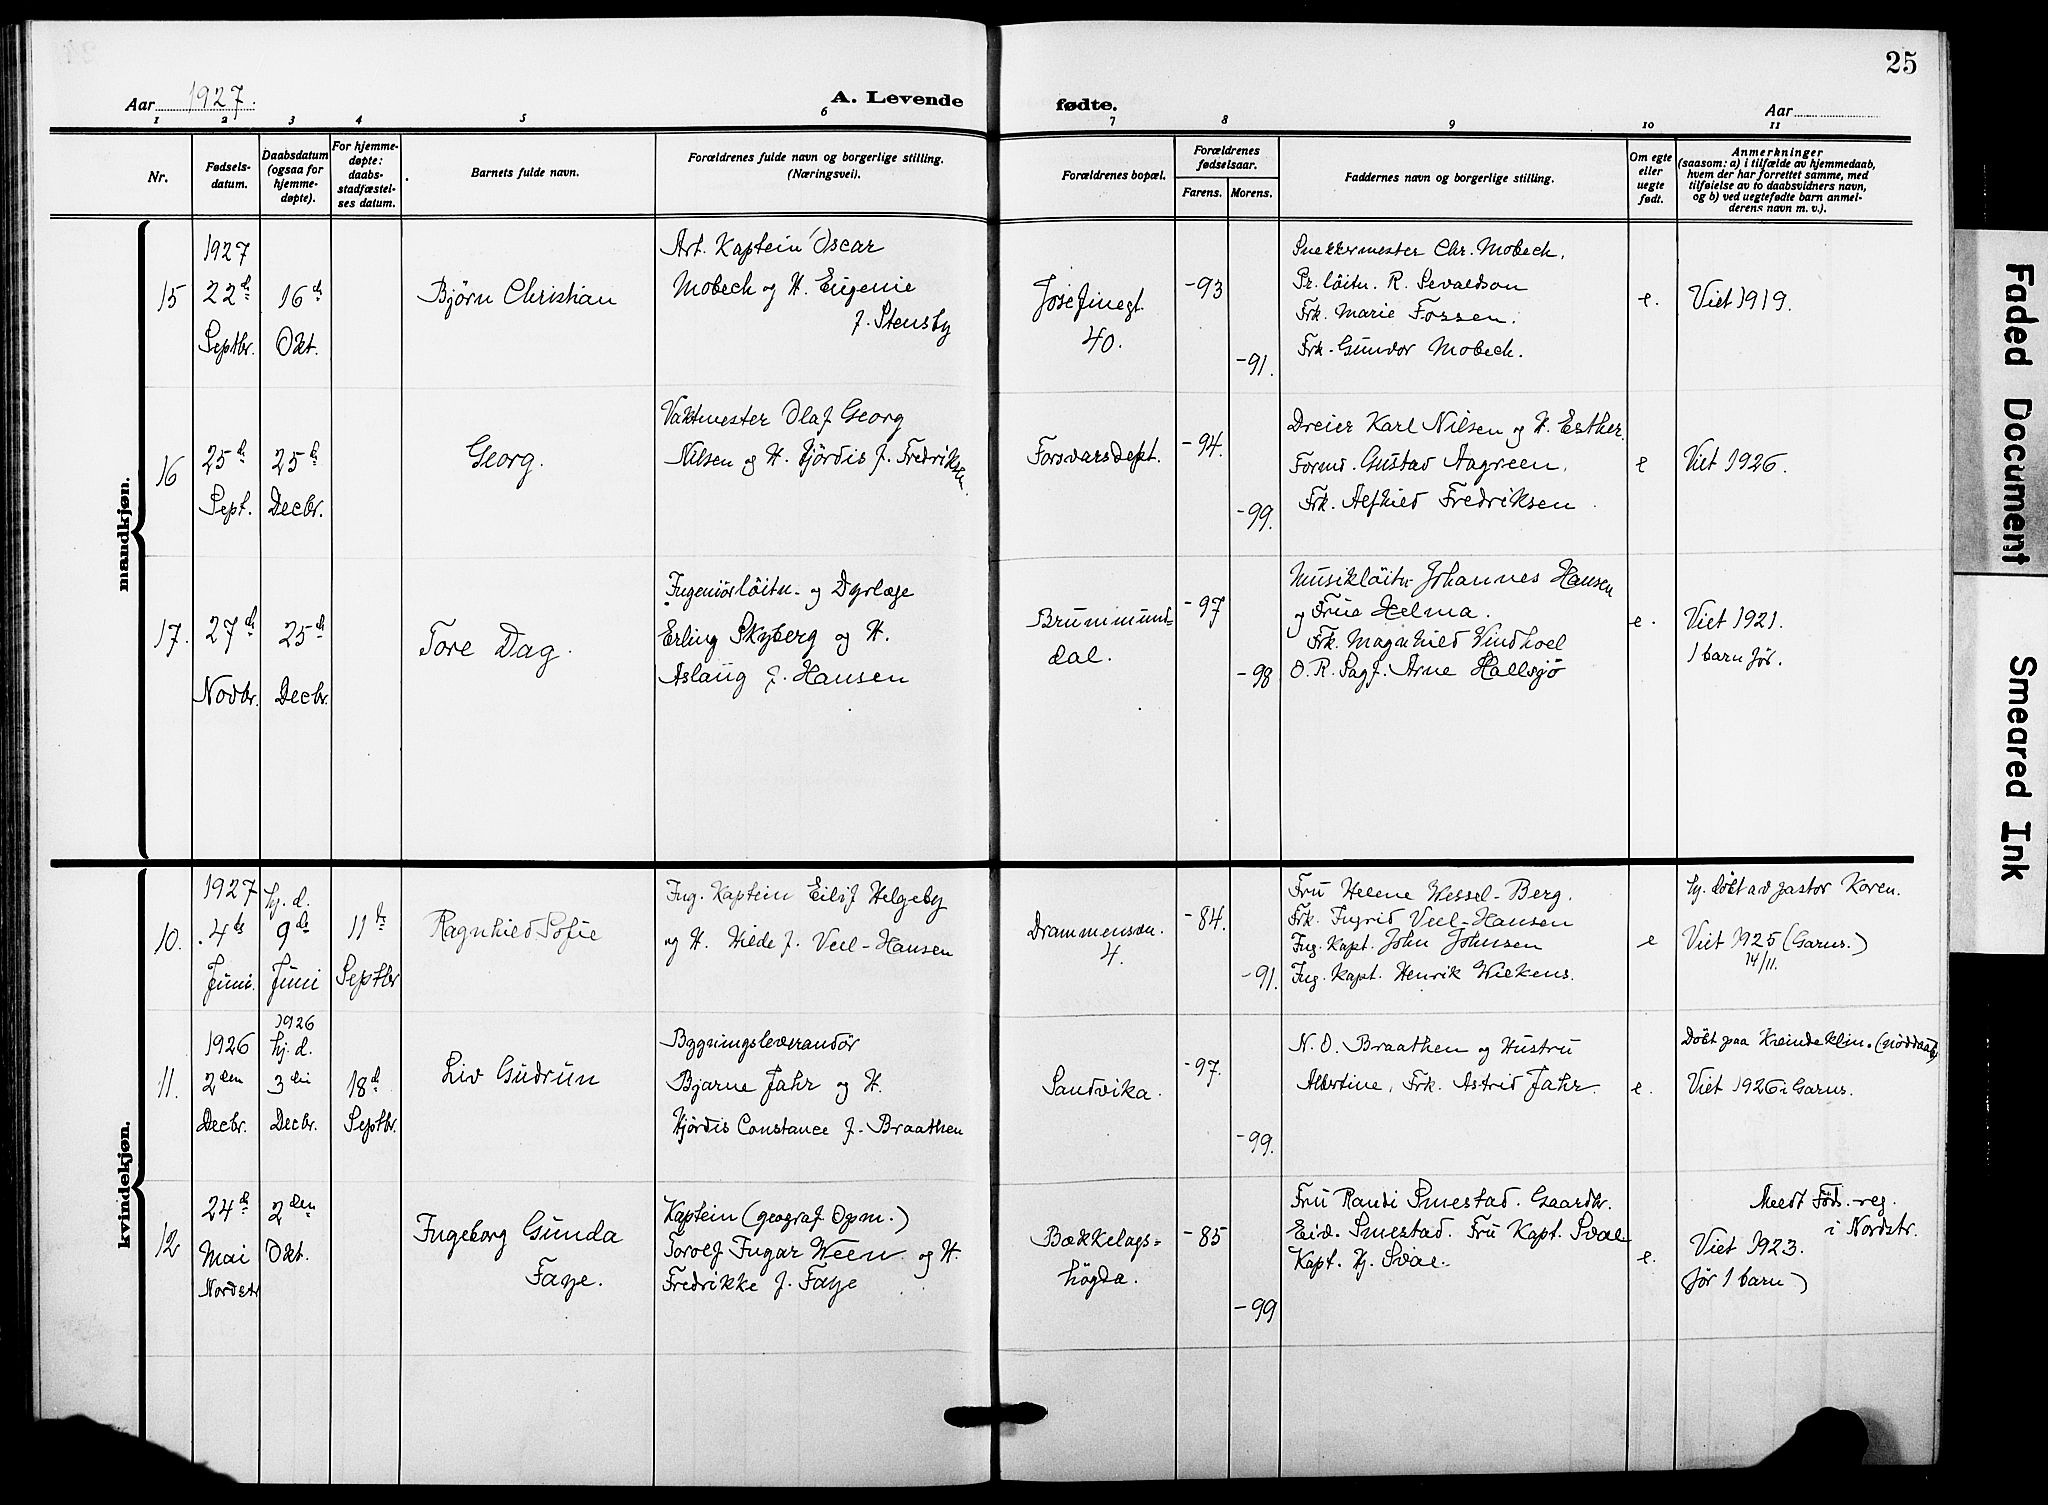 25
Aar 1927.
A. Levende
fødte.
Aar
1 2 3 4 5 6 7 8 9 10 11
Nr.
Fødsels-
datum.
Daabsdatum
(ogsaa for
hjemme-
døpte).
For hjemme-
døpte:
daabs-
stadfæstel-
ses datum.
Barnets fulde navn.
Forældrenes fulde navn og borgerlige stilling.
(Næringsvei).
Forældrenes bopæl.
Forældrenes
fødselsaar.
Farens. Morens.
Faddernes navn og borgerlige stilling.
Om egte
eller
uegte
født.
Anmerkninger
(saasom: a) i tilfælde av hjemmedaab,
hvem der har forrettet samme, med
tilføielse av to daabsvidners navn,
og b) ved uegtefødte barn anmel-
derens navn m. v.).
mandkjøn.
15
1927
22de
Septbr.
16de
Okt.
Bjørn Christian
Art. Kaptein Oscar
Mobech og H. Eugenie
f. Stensby
Josefinegt.
40.
-93
-91.
Snekkermester Chr. Mobech.
Pr. löitn. R. Sevaldson
Frk. Marie Fossen.
Frk. Gundor Mobech.
e.
Viet 1919.
16
25de
Sept.
25de
Decbr.
Georg.
Vaktmester Olaf Georg
Nilsen og H. Hjördis f. Fredriksen.
Forsvarsdept.
-94.
-99.
Dreier Karl Nilsen og H. Esther.
Formd. Gustav Aagreen.
Frk. Alfhild Fredriksen
e
Viet 1926.
17.
27de
Novbr.
25de
Decbr.
Tore Dag.
Ingeniörlöitn. og Dyrlæge
Erling Skyberg og H.
Aslaüg f. Hansen
Brummund-
dal.
-97
-98
Musiklöitn. Johannes Hansen
og Frue Helma.
Frk. Magnhild Vindhol
O. R. Sagf. Arne Hallsjö
e.
Viet 1921.
1 barn før.
kvindekjøn.
10.
1927
4de
Juni.
hj. d.
9de
Juni
11te
Septbr
Ragnhild Sofie
Ing. Kaptein Eilif Helgeby
og H. Hilde f. Veel-Hansen
Drammensvn.
4.
-84.
-91.
Fru Helene Wessel-Berg.
Frk. Ingrid Veel-Hansen
Ing. Kapt. John Johnsen
Ing. Kapt. Henrik Wiekens.
e
hj. döbt av pastor Koren.
Viet 1925 (Garns.)
14/11.
11.
1926
2den
Decbr.
1926
hj. d.
3die
Decbr.
18de
Septbr.
Liv Gudrun
Bygningsleverandør
Bjarne Jahr og H.
Hjördis Constance f. Braathen
Sandvika.
-97.
-99.
N. O. Braathen og Hustru
Albertine, Frk. Astrid Jahr.
e.
Döbt paa Kvindeklin. (nöddaab)
Viet 1926 i Garns.
12
24de
Mai
Nordstr
2den
Okt.
Ingeborg Gunda
Faye.
Kaptein (geograf Opm.)
Torolf Ingar Ween og H.
Fredrikke f. Faye
Bækkelags-
högda.
-85
-99
Fru Randi Smestad. Gaardbr.
Eiv. Smestad. Fru Kapt. Svae
Kapt. Hj. Svae.
e.
Meldt Föds. reg.
i Nordstr.
Viet 1923.
(før 1 barn)
Faded Document
Smeared Ink